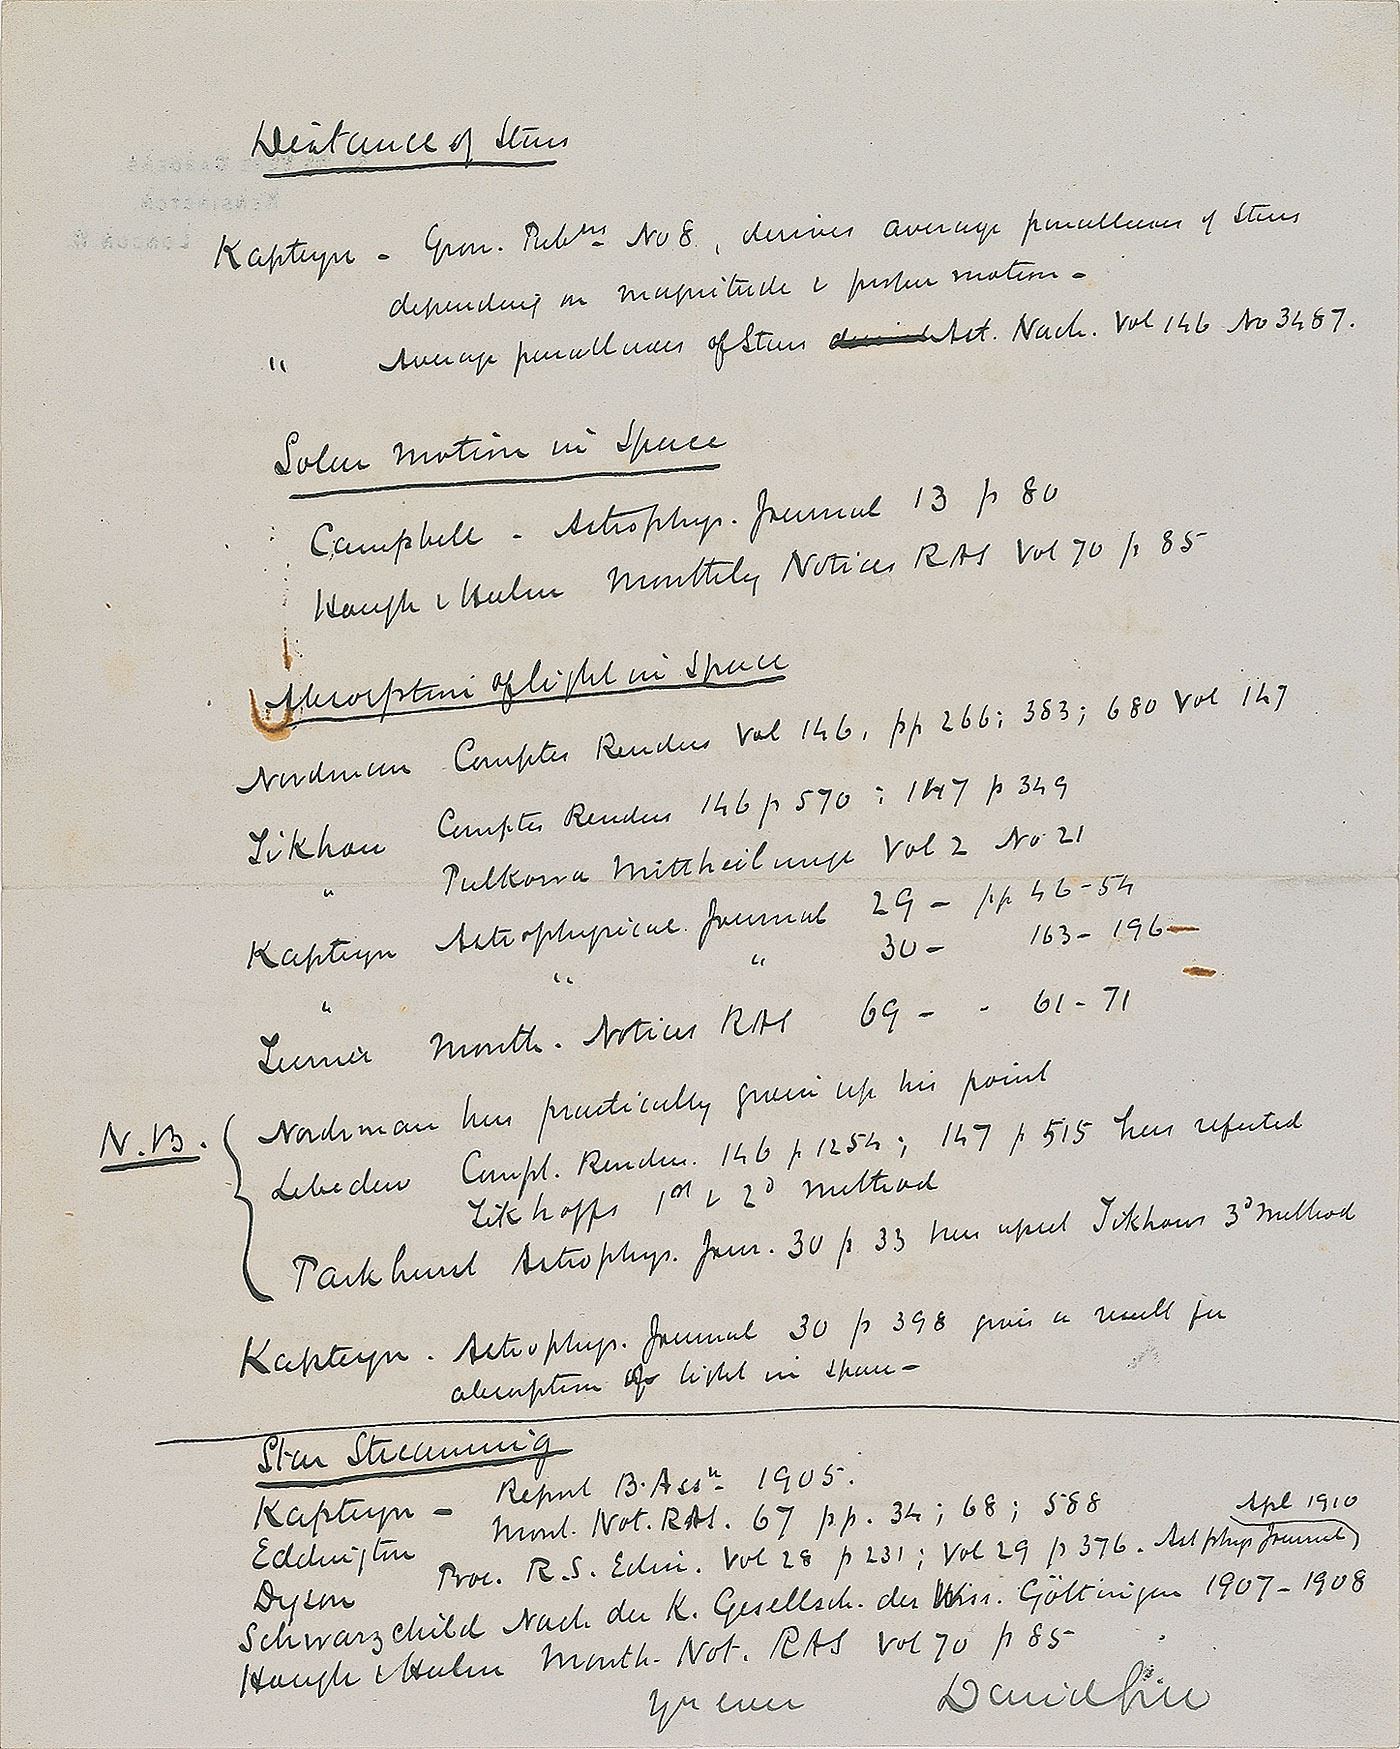 Distance of Stars
Kapteyn - Gron. Publns No 8, derives average parallaxes of Stars
depending on magnitude & proper motion -
" Average parallaxes of Stars Ast. Nach. Vol 146 No 3487.
Solar Motion in Space
Campbell - Astrophys. Journal 13 p 80
Hough & Halm Monthly Notices RAS Vol 70 p 85
Absorption of light in Space
Nordman Comptes Rendus Vol 146, pp 266; 383; 680 Vol 147
Tikhov Comptes Rendus 146 p 570; 147 p 349
" Pulkowa Mittheilunge Vol 2 No 21
Kapteyn Astrophysical Journal 29 - pp 46-54
" " " 30 - 163-196
Turner Month. Notices RAS 69 - - 61-71
N.B. Nordman has practically given up his point
Lebedew Compt. Rendus. 146 p 1254; 147 p 515 has refuted
Tikhoffs 1st & 2d method
Parkhurst Astrophys. Jour. 30 p 33 has upset Tikhovs 3d Method
Kapteyn. Astrophys. Journal 30 p 398 gives a result for
absorption of light in space -
Star Streaming
Kapteyn - Report B. Assn. 1905.
Eddington Mont. Not. RAS. 67 pp. 34; 68; 588
Dyson Proc. R.S. Edin. Vol 28 p 231; Vol 29 p 376. Astphys Journal Apl 1910
Schwarzschild Nach der K. Gesellsch. der Wiss. Göttingen 1907-1908
Hough & Halm Month. Not. RAS Vol 70 p 85
Yrs ever David Gill